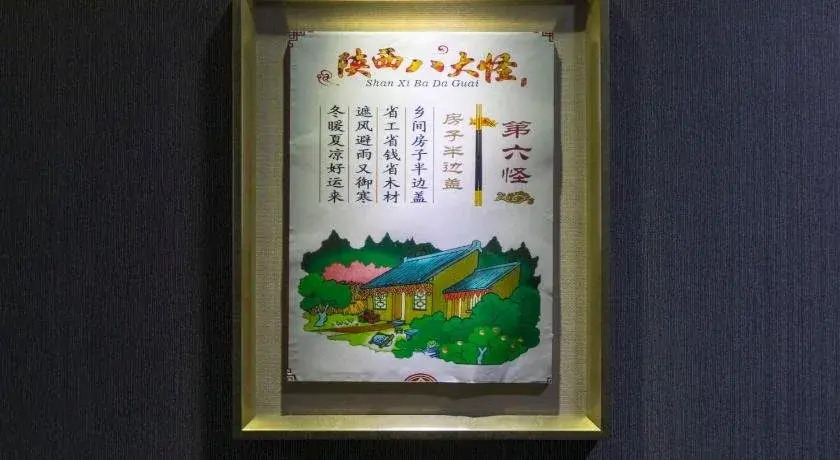 陕西八大怪
Shan Xi Ba Da Guai
第六怪
房子半边盖
乡间房子半边盖
省工省钱省木材
遮风避雨又御寒
冬暖夏凉好运来